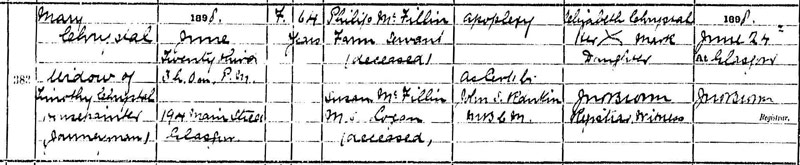 Mary
Chrystal
382
Widow of
Timothy Chrystal
Housepainter
(Journeyman)
1898.
June
Twenty third
3h. 0m. P.M.
194 Main Street
Glasgow
F.
64
Years
Philip McFillin
Farm Servant
(deceased)
Susan McFillin
M.S.
(deceased)
Apoplexy
As Cert. by
John S. Rankin
M.B.C.M.
Elizabeth Chrystal
Her X Mark
Daughter
Jno Brown
Registrar, Witness
1898.
June 24
At Glasgow
Jno Brown
Registrar.